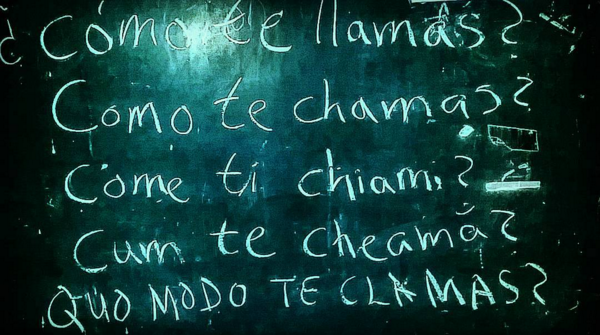 ¿Cómo te llamas?
Como te chamas?
Come ti chiami?
Cum te cheamă?
QUO MODO TE CLAMAS?